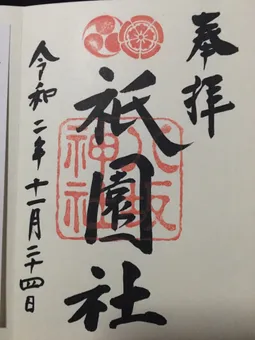 奉拝
祇園社
八坂
神社
令和二年十一月二十四日